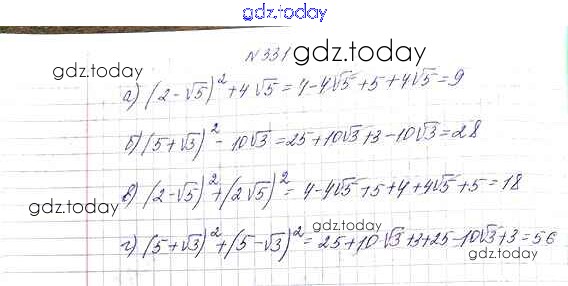 gdz.today
N 331 gdz.today
gdz.today
а) (2-√5)² + 4√5 = 4-4√5+5+4√5 = 9
б) (5+√3)² - 10√3 = 25+10√3+3-10√3 = 28
gdz.today
в) (2-√5)² + (2√5)² = 4-4√5+5+4+4√5+5 = 18
gdz.today
г) (5+√3)² + (5-√3)² = 25+10√3+3+25-10√3+3 = 56
gdz.today